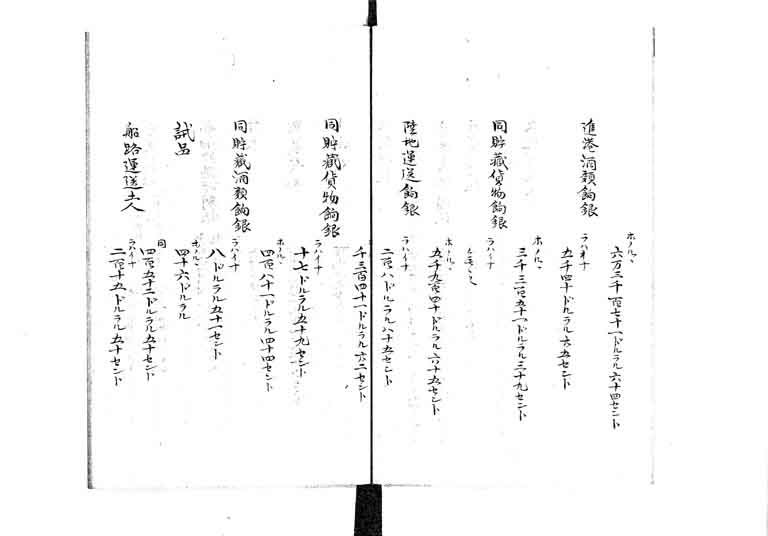 ホノルヽ
六万三千百七十一ドルラル六十四セント
進港酒類餉銀
ラハイナ
五千四十ドルラル六五セント
ホノルヽ
三千三百五十一ドルラル三十九セント
同貯蔵貨物餉銀
ラハイナ
ホノルヽ
五千九百四十ドルラル六十五セント
陸地運送餉銀
ラハイナ
二百八ドルラル八十五セント
千三百四十一ドルラル六二セント
同貯蔵貨物餉銀
ラハイナ
十七ドルラル五十九セント
ホノルヽ
四百八十一ドルラル四十四セント
同貯蔵酒類餉銀
ラハイナ
八ドルラル五十一セント
ホノルヽ
四十六ドルラル
試品
同
四百五十二ドルラル五十セント
船路運送土人
ラハイナ
二百十五ドルラル五十セント